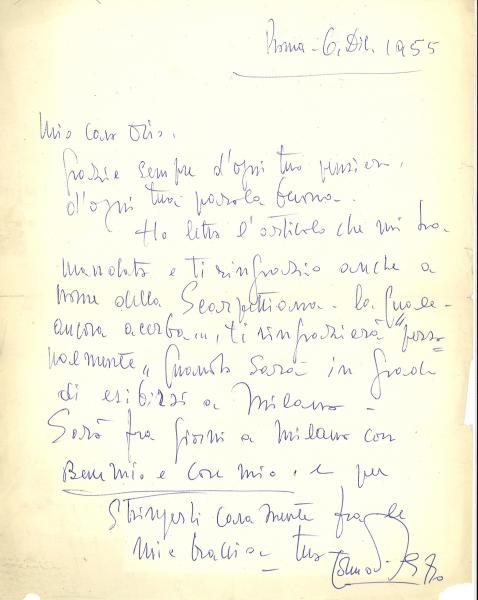 Roma - 6. Dic. 1955
Mio caro Olis.
Grazie sempre d'ogni tuo pensiero,
d'ogni tua parola buona.
Ho letto l'articolo che mi ha
mandato e ti ringrazio anche a
nome della Scarpettiana - la quale -
ancora acerba..., ti ringrazierà "perso
nalmente" quando sarà in grado
di esibirsi a Milano -
Sarò fra giorni a Milano con
Bene mio e core mio, e per
stringerti caramente fra le
mie braccia - tuo